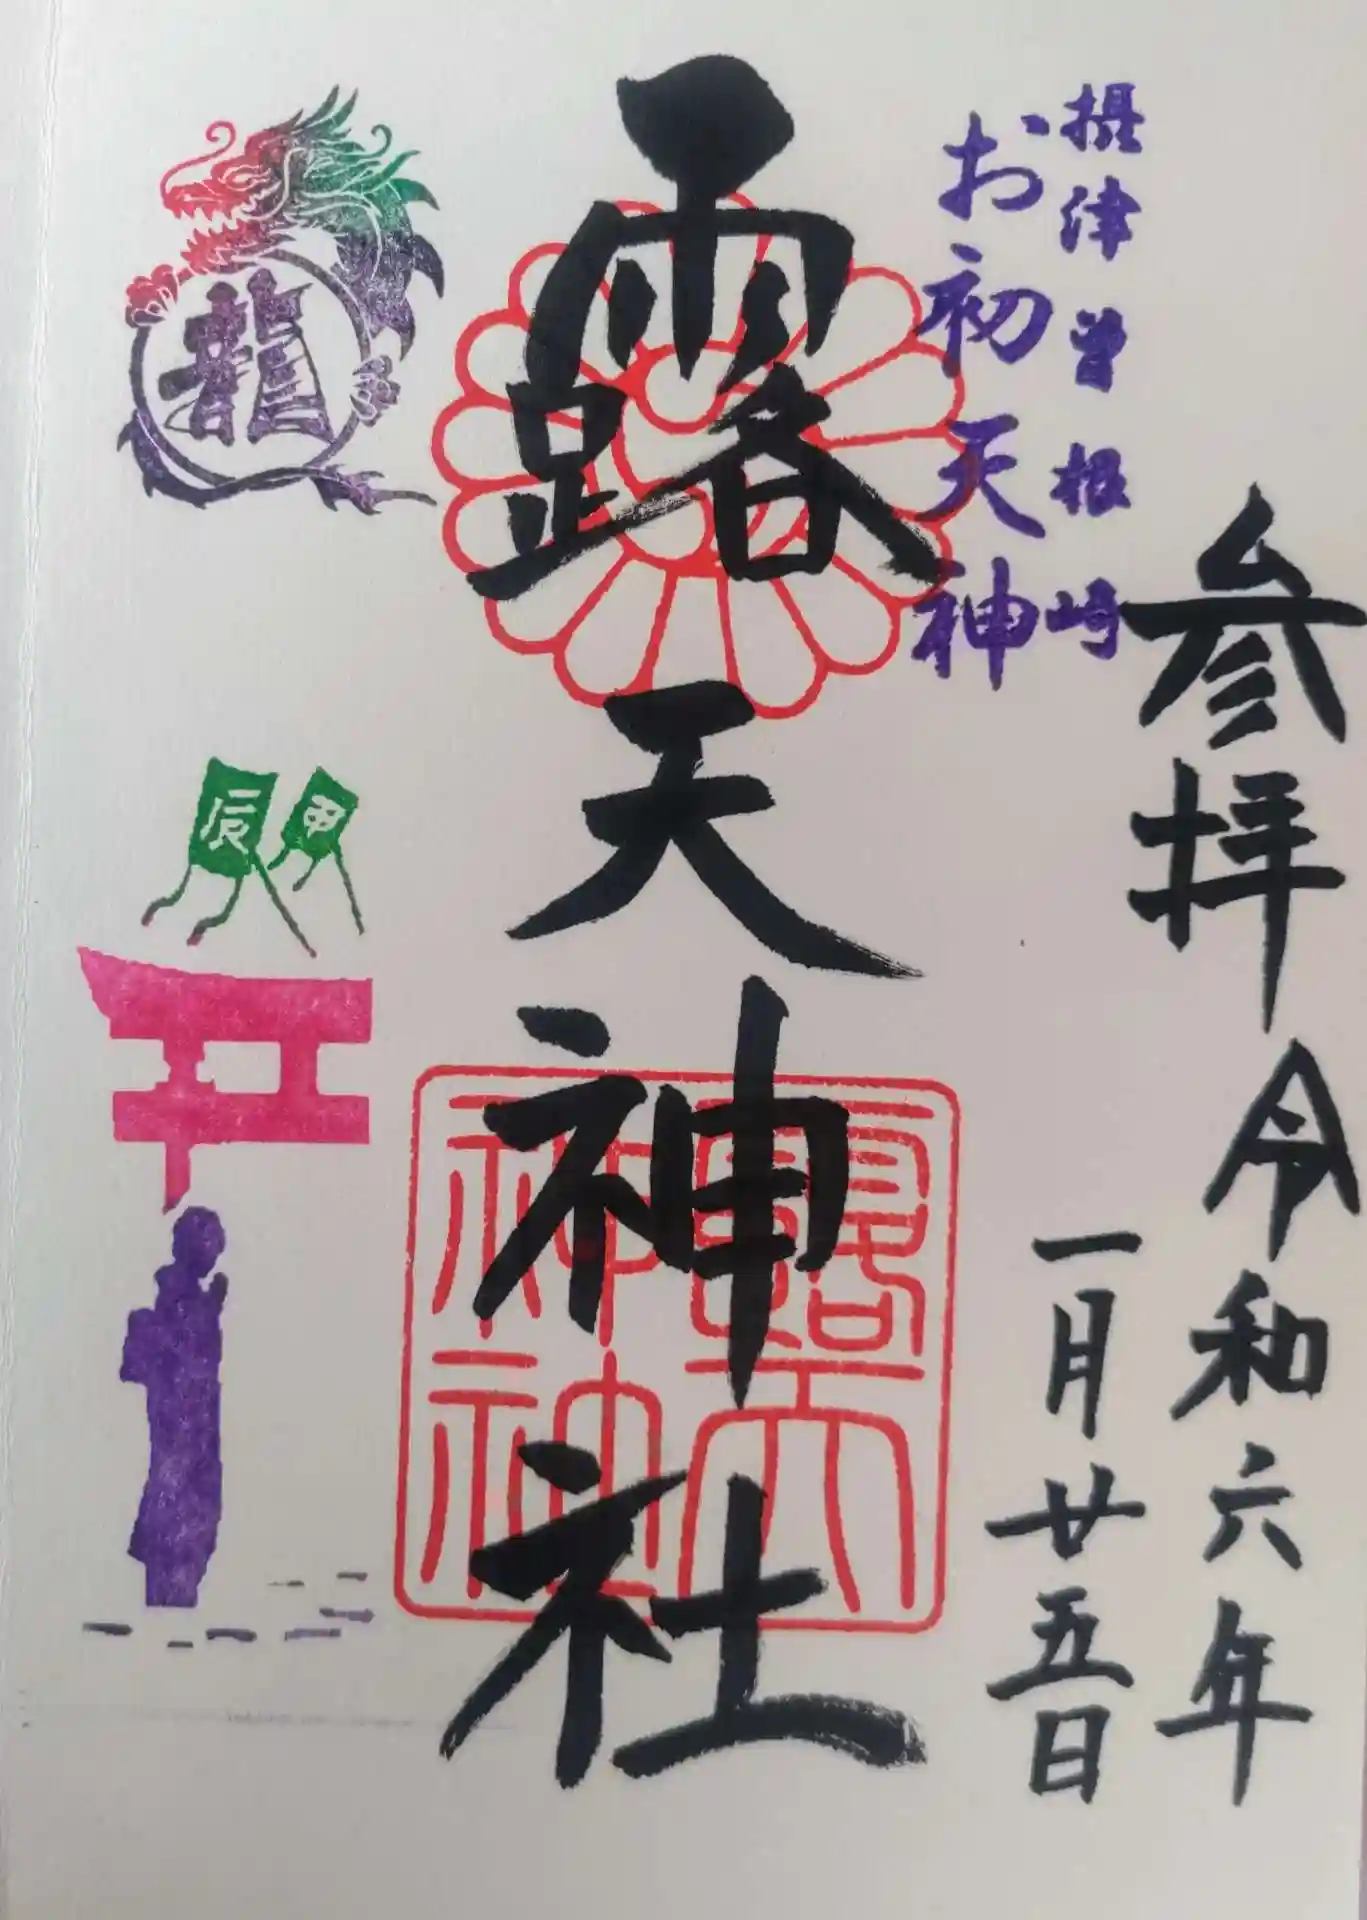 参拝 令和六年
一月廿五日
摂津曽根崎
お初天神
露天神社
露天
神社
龍
甲
辰